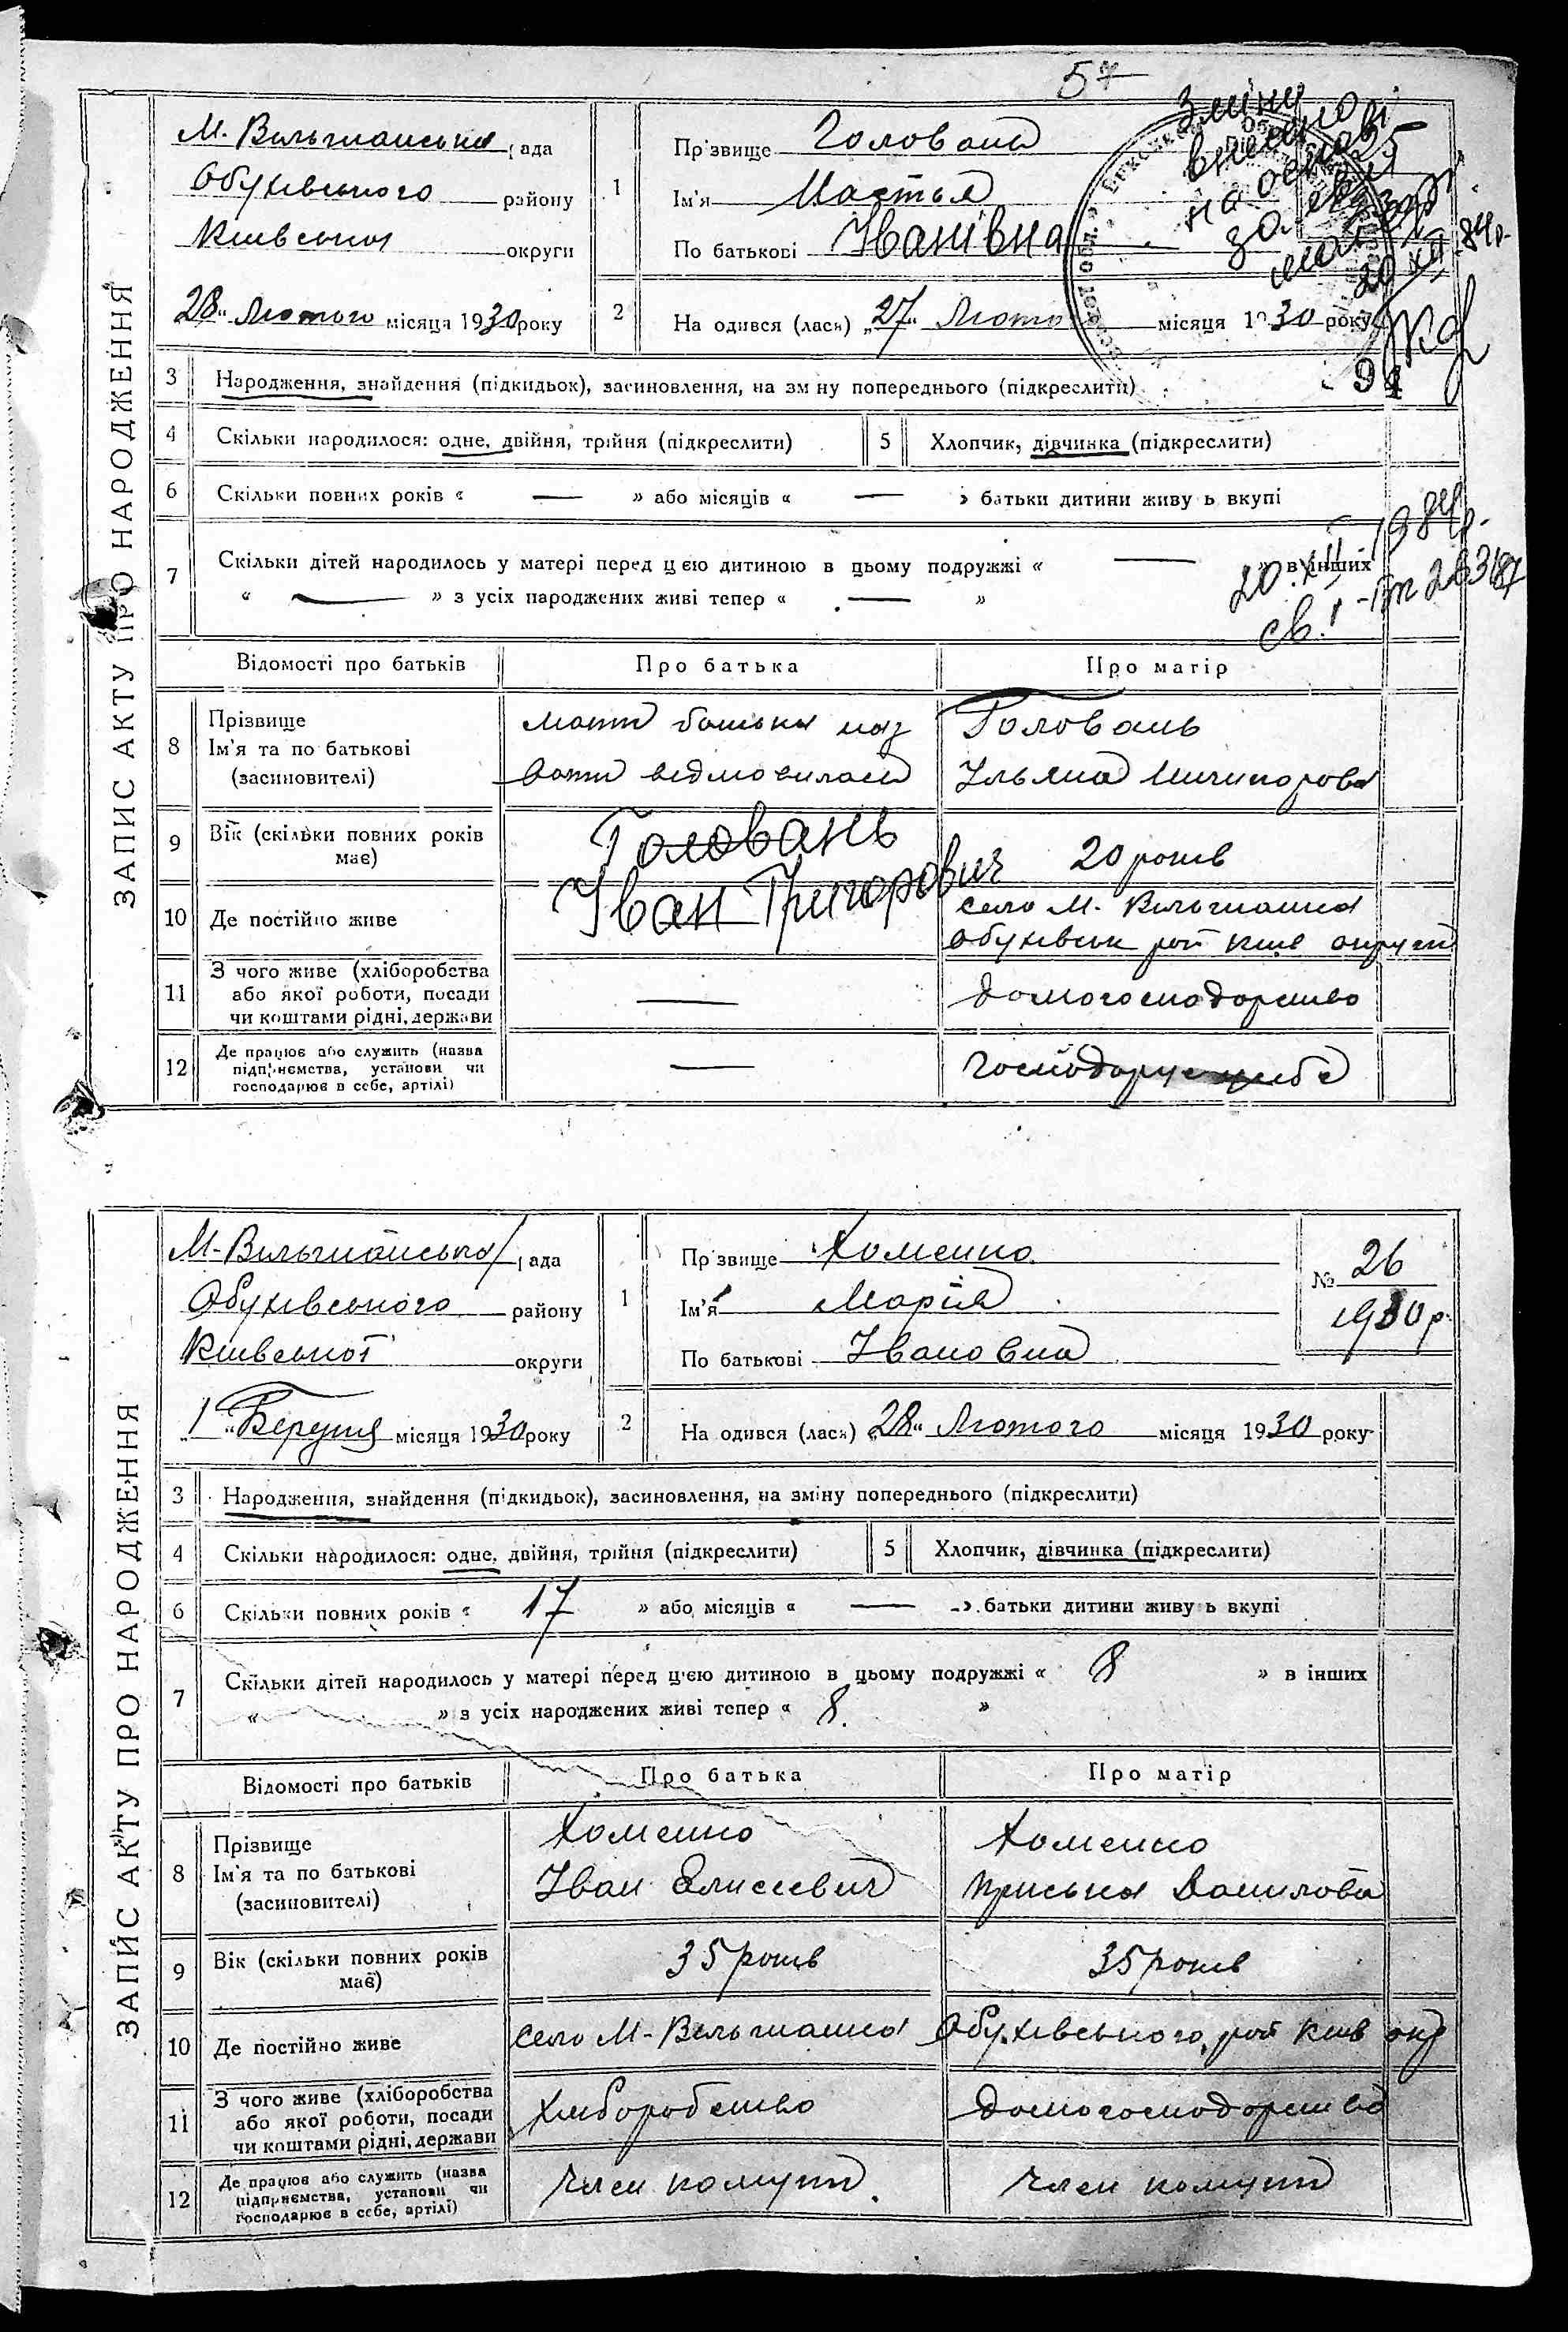 57
ЗАПИС АКТУ ПРО НАРОДЖЕННЯ
М. Вільшанська рада
Обухівського району
Київської округи
28 Лютого місяця 1930 року
1
Прізвище Головань
Ім'я Настья
По батькові Іванівна
2
На одився (лася) „27“ Люто місяця 1930 року
Зміни
внесено
на основі
20 XII 84р.
25
94
3 Народження, знайдення (підкидьок), засиновлення, на зміну попереднього (підкреслити)
4 Скільки народилося: одне, двійня, трійня (підкреслити)
5 Хлопчик, дівчинка (підкреслити)
6 Скільки повних років « — » або місяців « — » батьки дитини живу ь вкупі
7 Скільки дітей народилось у матері перед цією дитиною в цьому подружжі « — » в інших
« — » з усіх народжених живі тепер « — »
20.XII-1984р.
св.
Відомості про батьків Про батька Про матір
8 Прізвище
Ім'я та по батькові
(засиновителі)
мати батька наз
вати відмовилася
Головань
Ульяна Ничипорова
9 Вік (скільки повних років
має)
Головань
Іван Григорович
20 років
10 Де постійно живе
село М. Вільшанка
Обухівськ рай Київ округи
11 З чого живе (хліборобства
або якої роботи, посади
чи коштами рідні, держави
—
домогосподарство
12 Де працює або служить (назва
підприємства, установи чи
господарює в себе, артілі)
—
Господарує
ЗАПИС АКТУ ПРО НАРОДЖЕННЯ
М-Вільшанська рада
Обухівського району
Київської округи
„1“ Березня місяця 1930 року
1
Прізвище Хоменко
Ім'я Марія
По батькові Івановна
№ 26
1930 р.
2
На одився (лася) „28“ Лютого місяця 1930 року
3 Народження, знайдення (підкидьок), засиновлення, на зміну попереднього (підкреслити)
4 Скільки народилося: одне, двійня, трійня (підкреслити)
5 Хлопчик, дівчинка (підкреслити)
6 Скільки повних років « 17 » або місяців « — » батьки дитини живу ь вкупі
7 Скільки дітей народилось у матері перед цією дитиною в цьому подружжі « 8 » в інших
« » з усіх народжених живі тепер « 8. »
Відомості про батьків Про батька Про матір
8 Прізвище
Ім'я та по батькові
(засиновителі)
Хоменко
Іван Елисеевич
Хоменко
Приська Данилова
9 Вік (скільки повних років
має)
35 років
35 років
10 Де постійно живе
село М-Вільшанка Обухівського рай Київ окр
11 З чого живе (хліборобства
або якої роботи, посади
чи коштами рідні, держави
Хліборобство
домогосподарство
12 Де працює або служить (назва
підприємства, установи чи
господарює в себе, артілі)
Член комуни
Член комуни